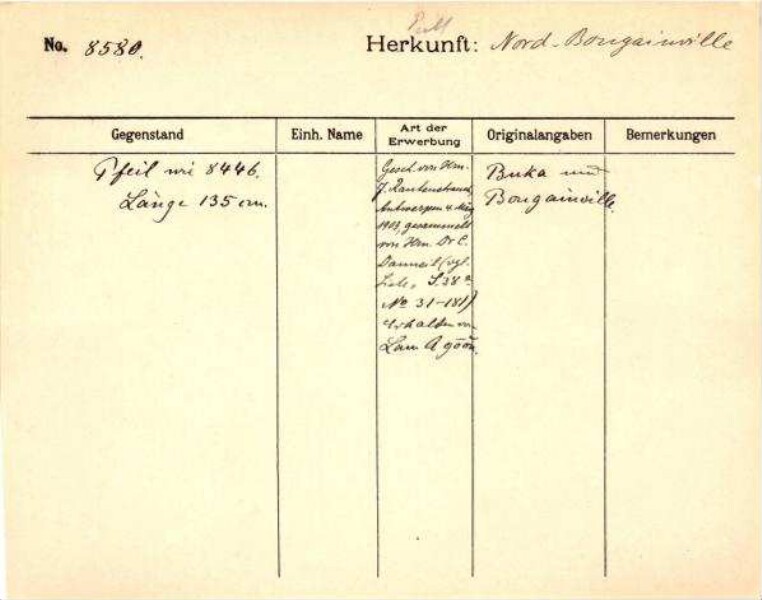 No. 8580.
Herkunft: Nord-Bougainville
Gegenstand
Einh. Name
Art der
Erwerbung
Originalangaben
Bemerkungen
Pfeil wie 8446.
Länge 135 cm.
Gesch. von Hrn.
J. Rautenstrauch,
Antwerpen 4. Mrz
1903, gesammelt
von Hrn. Dr C.
Danneil (vgl.
Liste, S. 38
No 31-181)
erhalten von
Lau
Buka und
Bougainville.